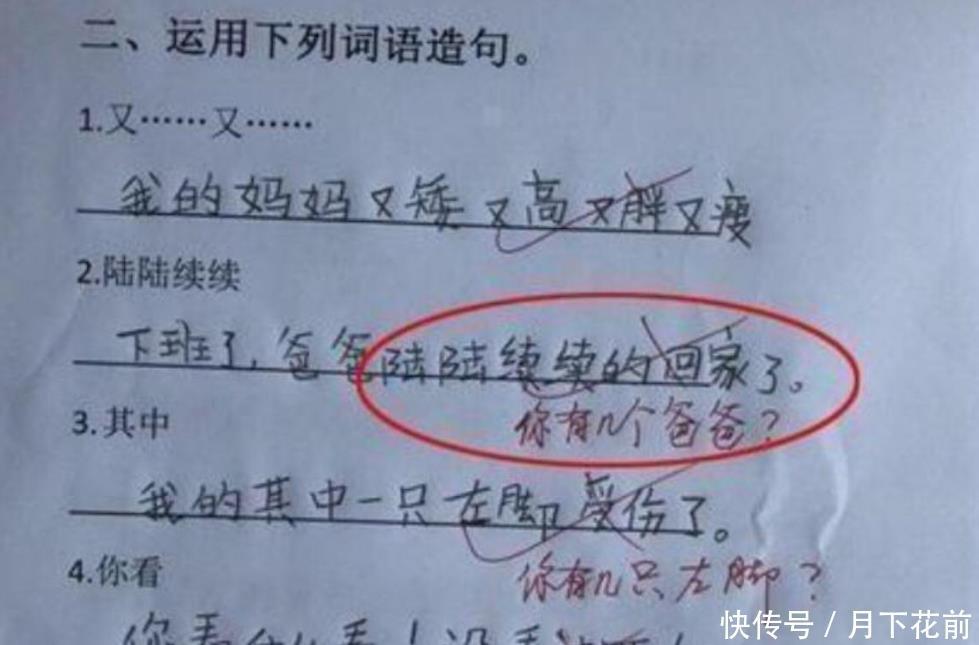 二、运用下列词语造句。
1.又……又……
我的妈妈又矮又高又胖又瘦
2.陆陆续续
下班了,爸爸陆陆续续的回家了。
你有几个爸爸?
3.其中
我的其中一只左脚受伤了。
你有几只左脚?
4.你看
你看
快传号 / 月下花前